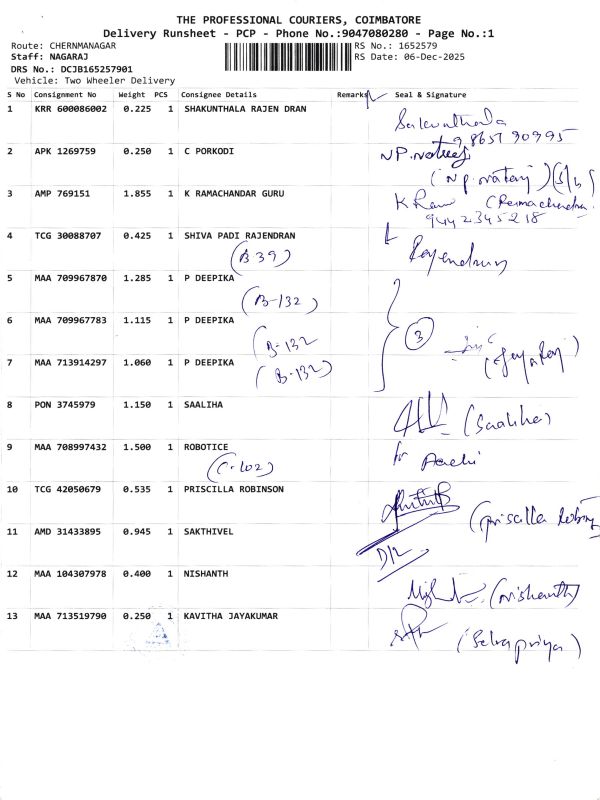 THE PROFESSIONAL COURIERS, COIMBATORE
Delivery Runsheet - PCP - Phone No.:9047080280 - Page No.:1
Route: CHERNMANAGAR RS No.: 1652579
Staff: NAGARAJ RS Date: 06-Dec-2025
DRS No.: DCJB165257901
Vehicle: Two Wheeler Delivery
S No Consignment No Weight PCS Consignee Details Remarks Seal & Signature
1 KRR 600086002 0.225 1 SHAKUNTHALA RAJEN DRAN
Sakunthala
9865790995
2 APK 1269759 0.250 1 C PORKODI
3 AMP 769151 1.855 1 K RAMACHANDAR GURU
9442345218
4 TCG 30088707 0.425 1 SHIVA PADI RAJENDRAN
(B 39) Rajendran
5 MAA 709967870 1.285 1 P DEEPIKA
(B-132)
6 MAA 709967783 1.115 1 P DEEPIKA
(B-132 3
7 MAA 713914297 1.060 1 P DEEPIKA
(B-132)
8 PON 3745979 1.150 1 SAALIHA
(Saaliha)
9 MAA 708997432 1.500 1 ROBOTICE
(C-102) for Aachi
10 TCG 42050679 0.535 1 PRISCILLA ROBINSON
(priscilla
11 AMD 31433895 0.945 1 SAKTHIVEL
D/L
12 MAA 104307978 0.400 1 NISHANTH
(Nishanth)
13 MAA 713519790 0.250 1 KAVITHA JAYAKUMAR
(Selvapriya)